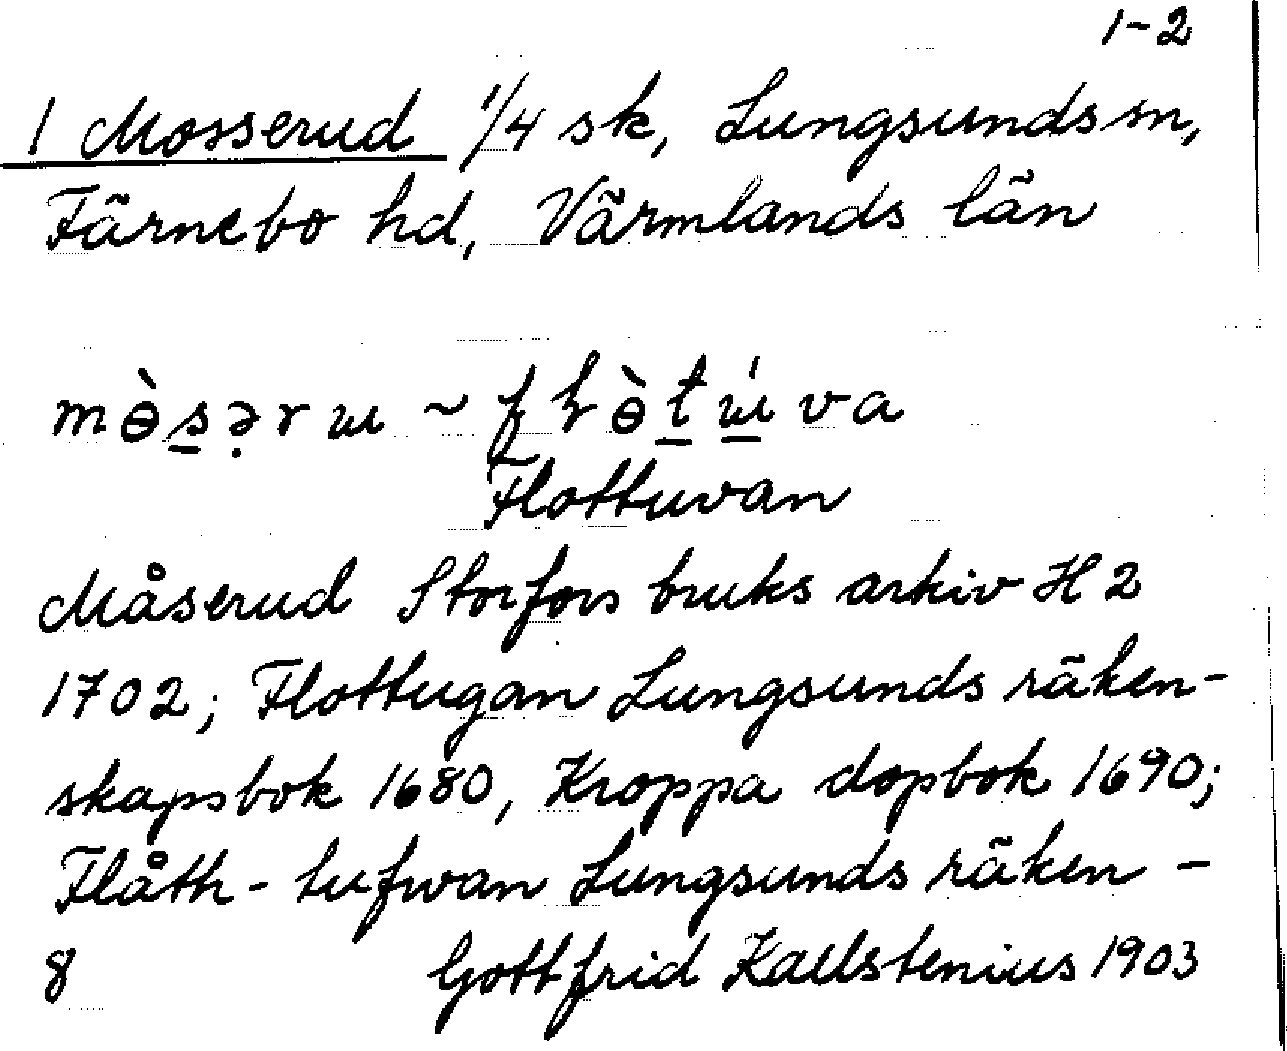 1-2
1 Mosserud 1/4 sk, Lungsunds sn,
Färnebo hd, Värmlands län
mɵ̀s̲ə̣rɯ ~ fɽɵ̀t̲ɯ̲́va
Flottuvan
Måserud Storfors bruks arkiv H 2
1702; Flottugan Lungsunds räken-
skapsbok 1680, Kroppa dopbok 1690;
Flåth-tufwan Lungsunds räken-
8 Gottfrid Kallstenius 1903